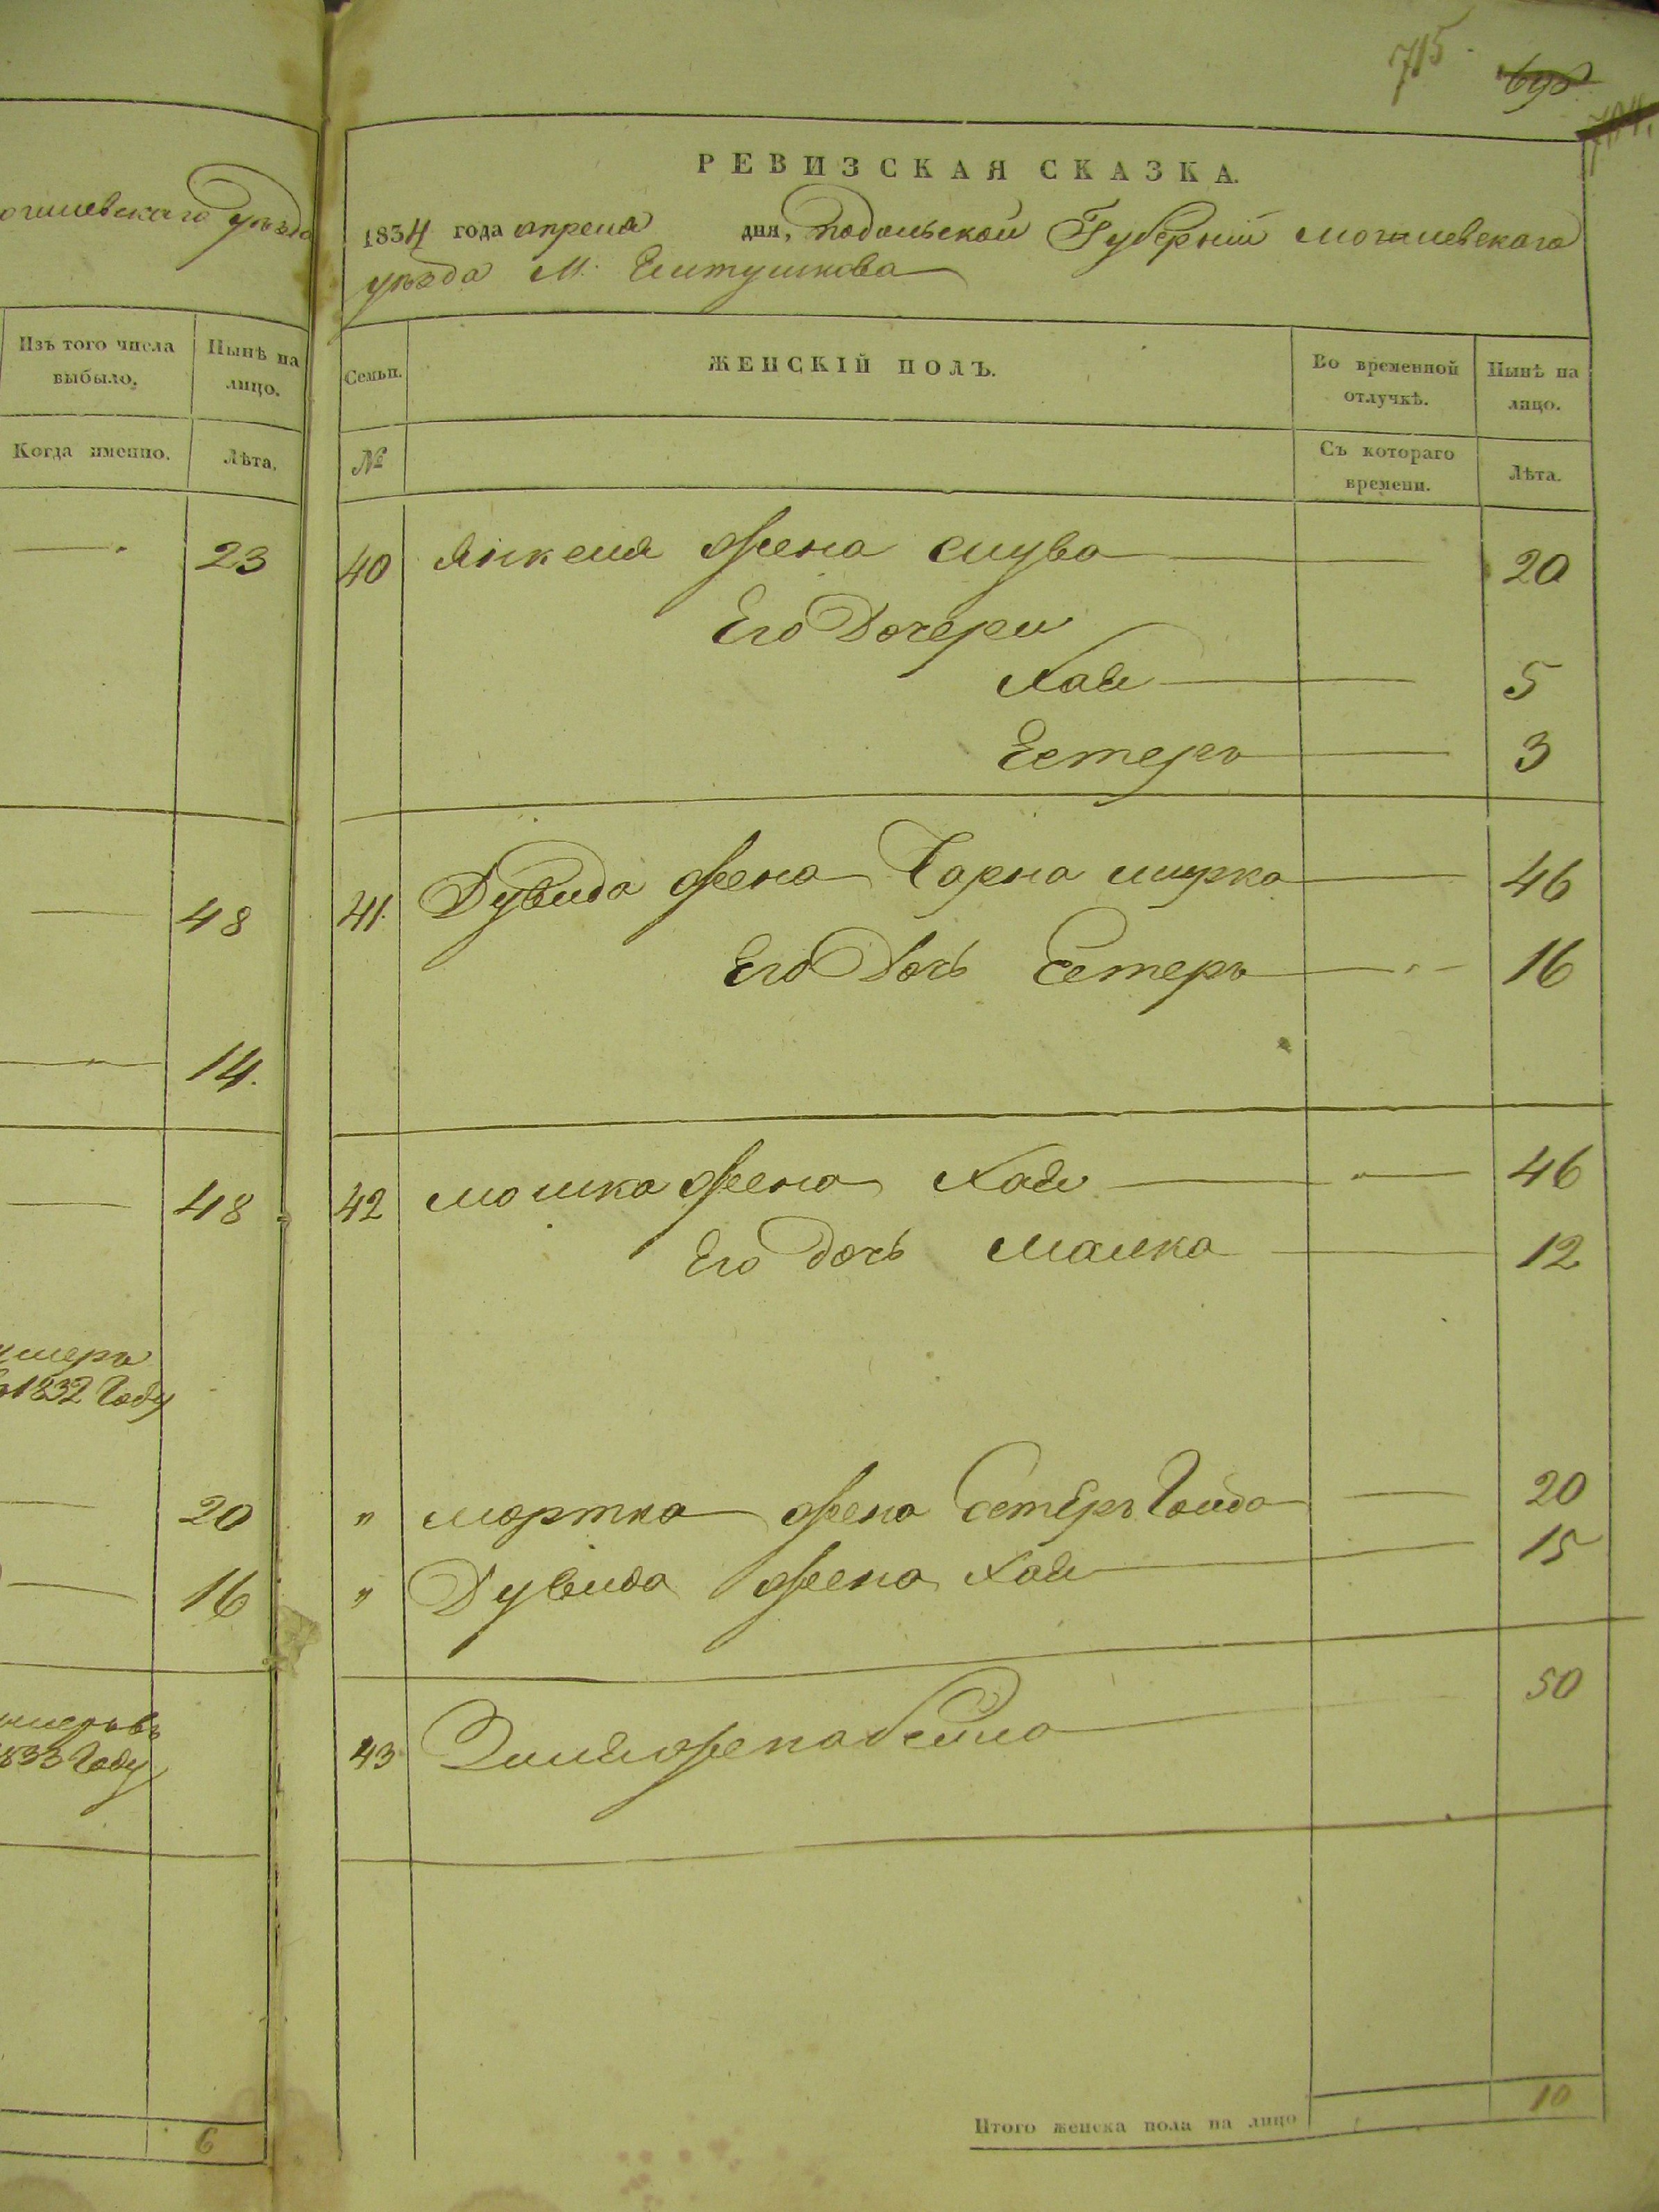 715.
698
704.
огилевскаго уѣзда
Изъ того числа выбыло.
Нынѣ на лицо.
Когда именно.
Лѣта.
— 23
— 48
— 14.
— 48
умеръ
въ 1832 Году
— 20
— 16
умеръ въ
1833 Году
6
РЕВИЗСКАЯ СКАЗКА.
1834 года апреля дня, Подольской Губерніи Могилевскаго
уѣзда М. Елтушкова
Семьи.
ЖЕНСКІЙ ПОЛЪ.
Во временной отлучкѣ.
Нынѣ на лицо.
№
Съ котораго времени.
Лѣта.
40 Янкеля жена слува — 20
Его Дочери
Хая — 5
Естеръ — 3
41. Дувида жена Чарна мирка — 46
Его Дочь Естеръ — 16
42 мошка жена Хая — 46
Его дочь Малка — 12
" мортка жена Естеръ Голда — 20
" Дувида жена Хая — 15
43 жена бейла — 50
Итого женска пола на лицо 10